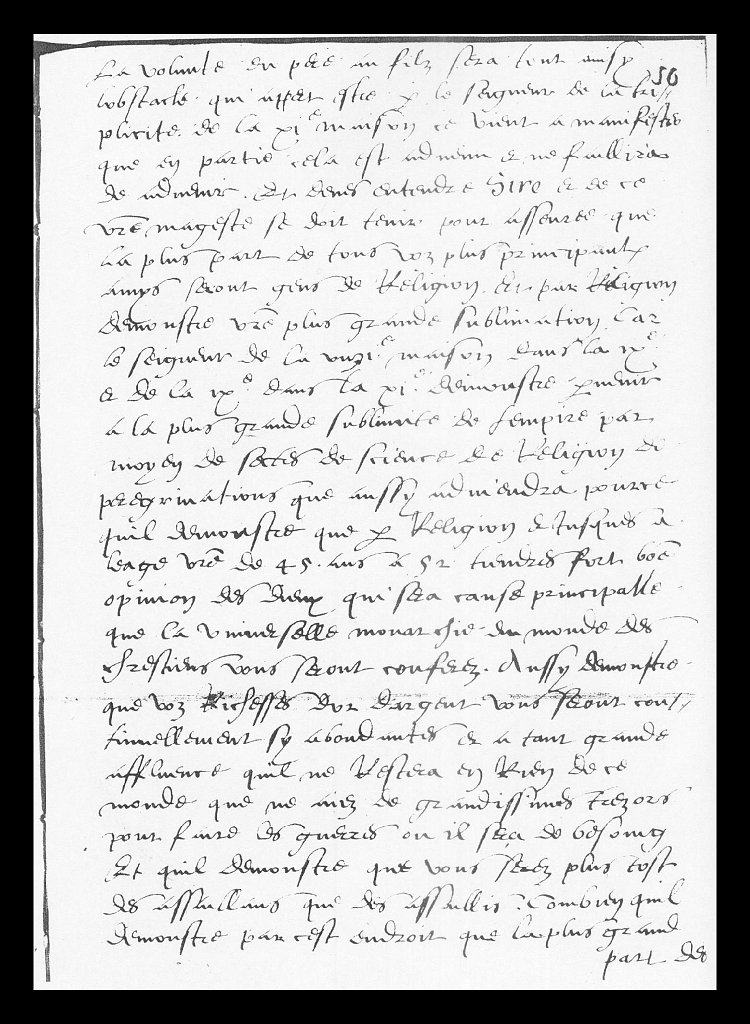 50
La volunte du pere au filz sera tout ainsy
lobstacle qui appert estre p le seigneur de la tri-
plicite de la xi.e maison ce vient a manifester
que en partie cela est advenu et ne faillira
de advenir. Et deves entendre Sire et de ce
vre mageste se doit tenir pour asseuree que
la plus part de tous voz plus principaulx
amys seront gens de Religion. Et par Religion
demonstre vre plus grande sublimation. Car
le seigneur de la unzi.e maison dans la ix.e
et de la ix.e dans la xi.e demonstre pvenir
a la plus grande sublimite de lempire par
moyen de sectes de science de Religion de
peregrinations que aussy adviendra pource
quil demonstre que p Religion et Jusques a
leage vre de 45. ans a 52 tiendres fort boe
opinion des dieux qui sera cause principalle
que la universelle monarchie du monde des
chrestiens vous seront conferez. Aussy demonstre
que voz Richesses dor dargent vous seront con-
tinuellement sy abondantes et a tant grande
affluence quil ne Restera en Rien de ce
monde que ne aiez de grandissimes trezors
pour faire les guerres ou il sera de besoing
Et quil demonstre que vous serez plus tost
des assaillans que des assallis. Combien quil
demonstre par cest endroit que la plus grand
part de